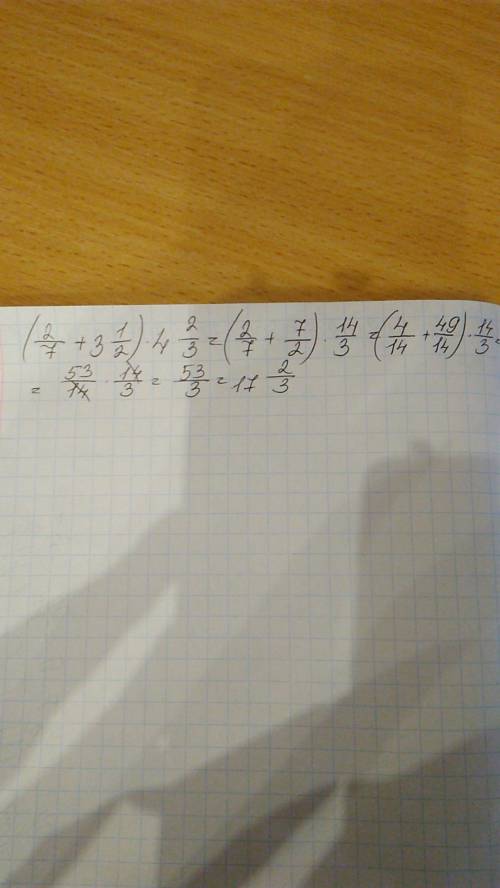 (2/7 + 3 1/2) · 4 2/3 = (2/7 + 7/2) · 14/3 = (4/14 + 49/14) · 14/3 =
= 53/14 · 14/3 = 53/3 = 17 2/3